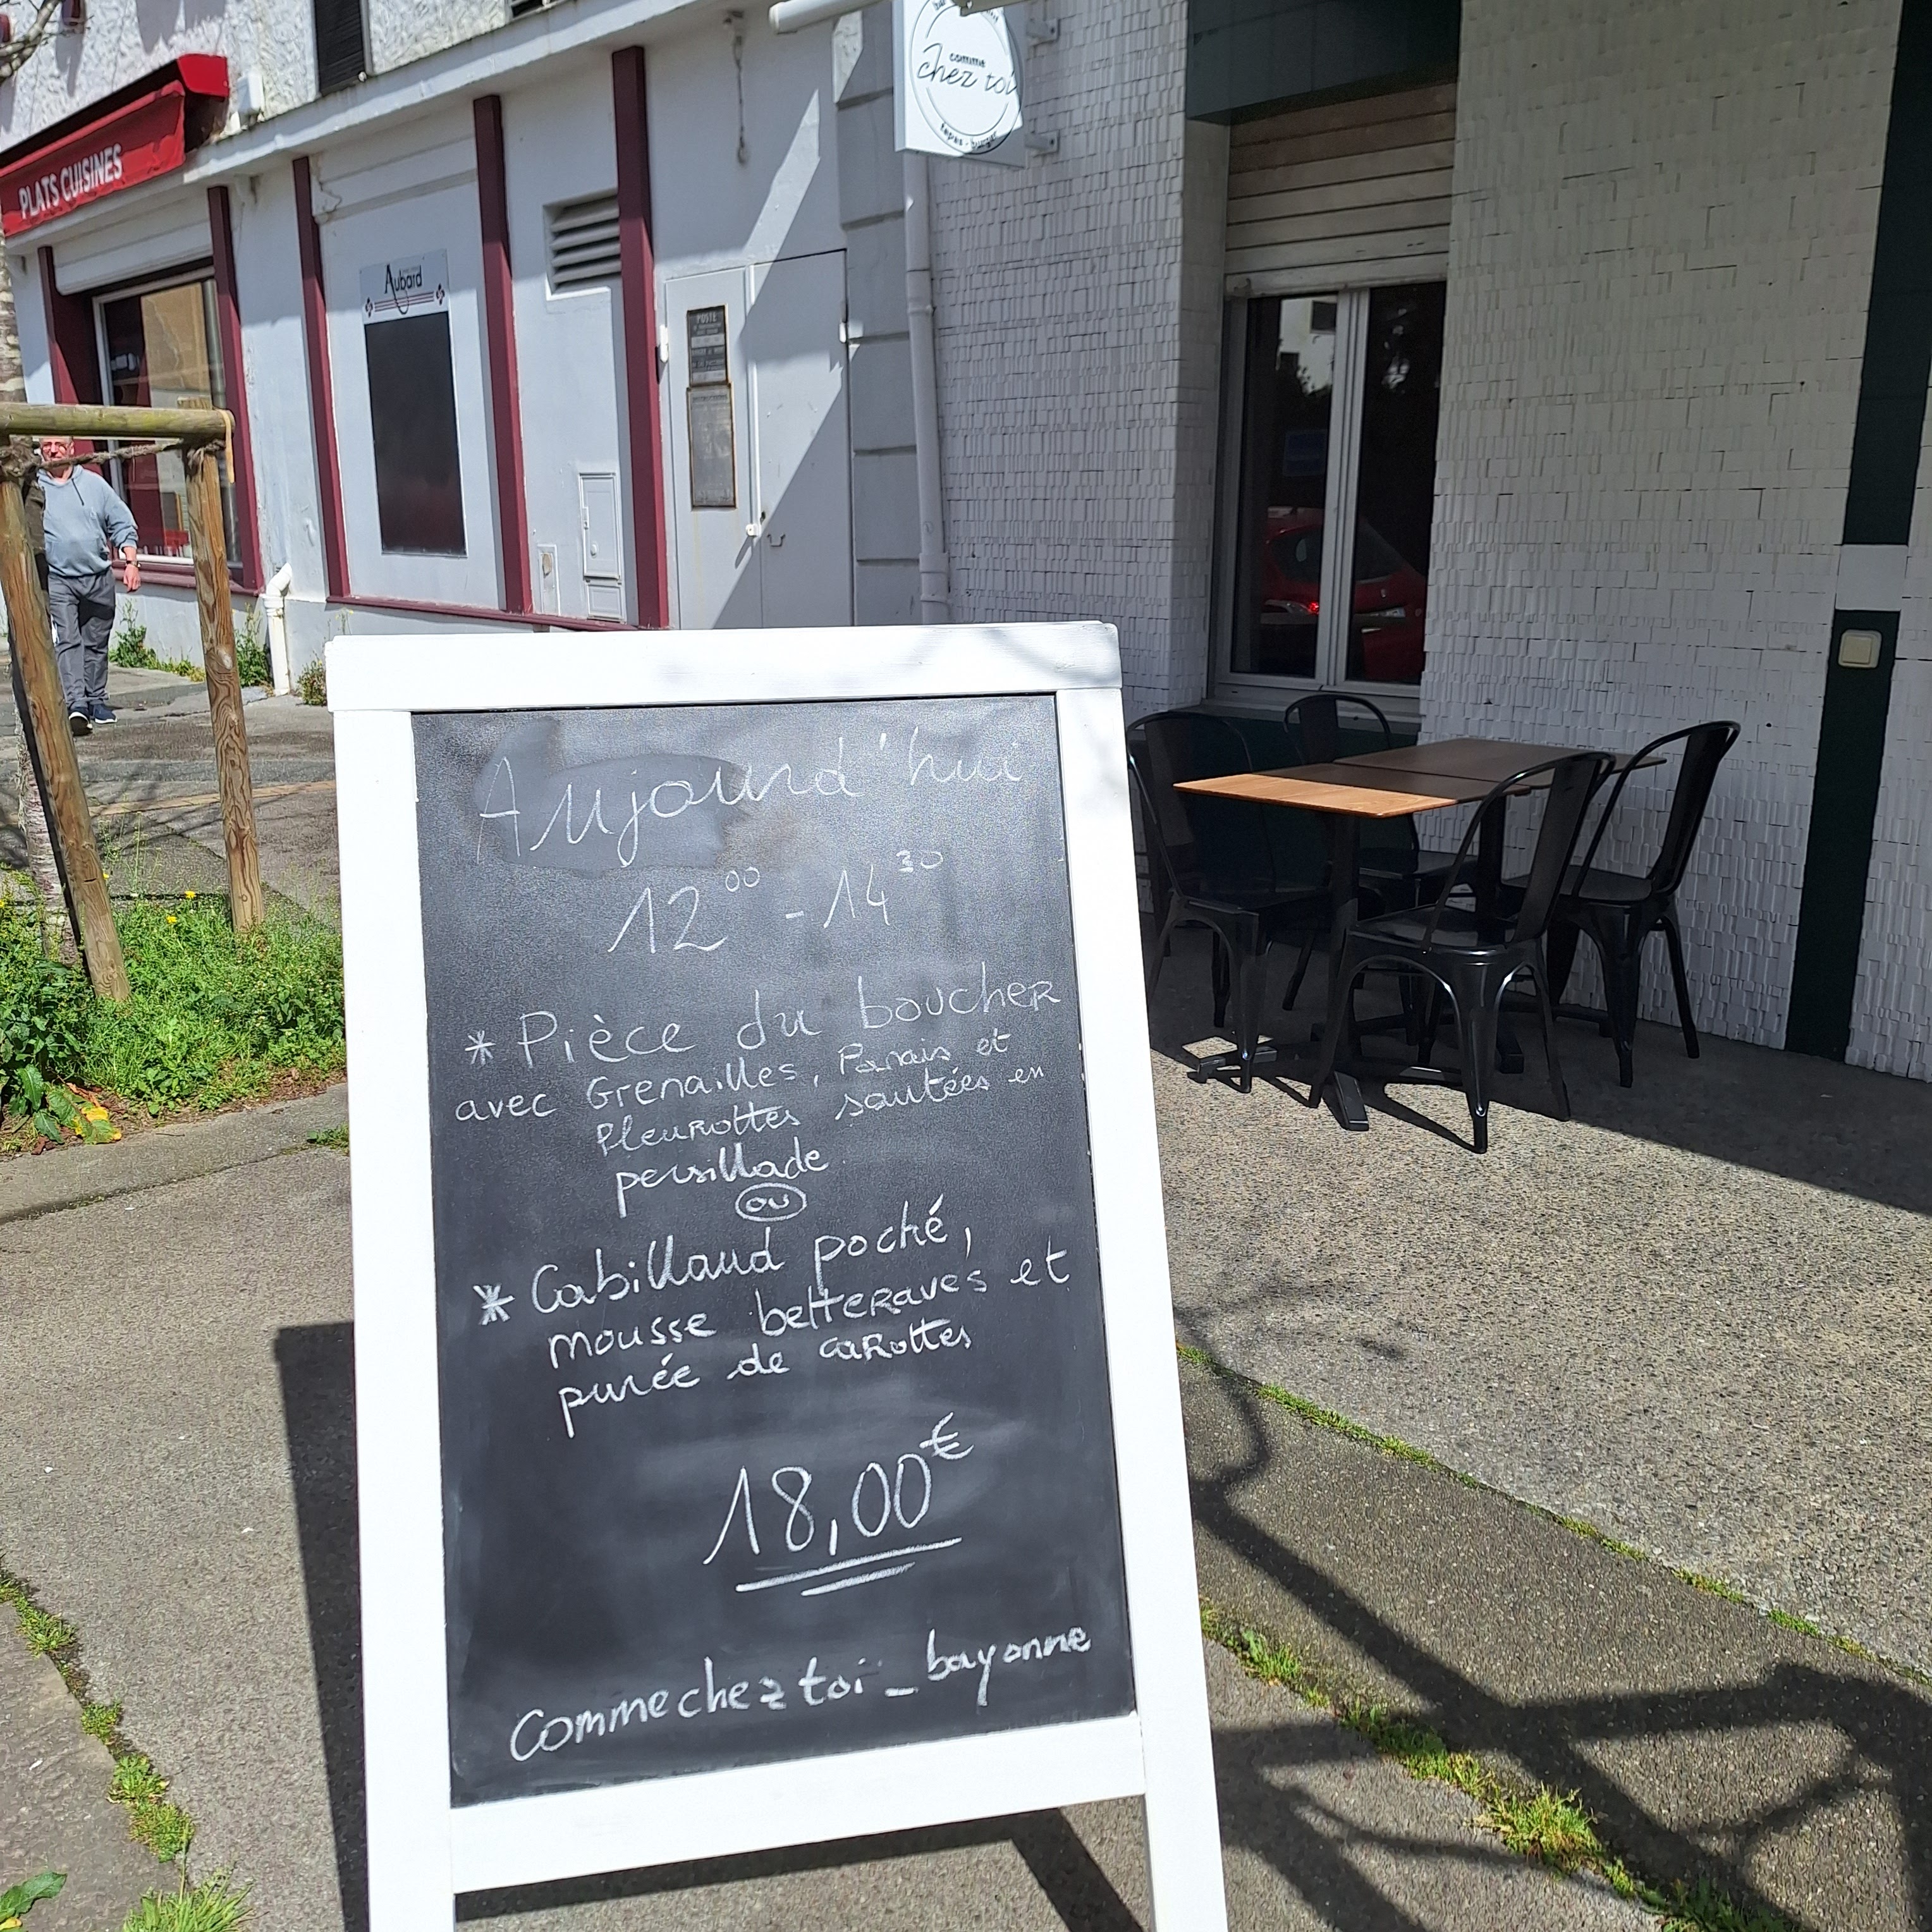 PLATS CUISINES
Aubard
POSTE
comme
chez toi
tapas - burger
Aujourd'hui
12 00 - 14 30
* Pièce du boucher
avec Grenailles, Panais et
Pleurottes sautées en
persillade
ou
* Cabillaud poché,
mousse betteraves et
purée de carottes
18,00€
Commecheztoi_bayonne